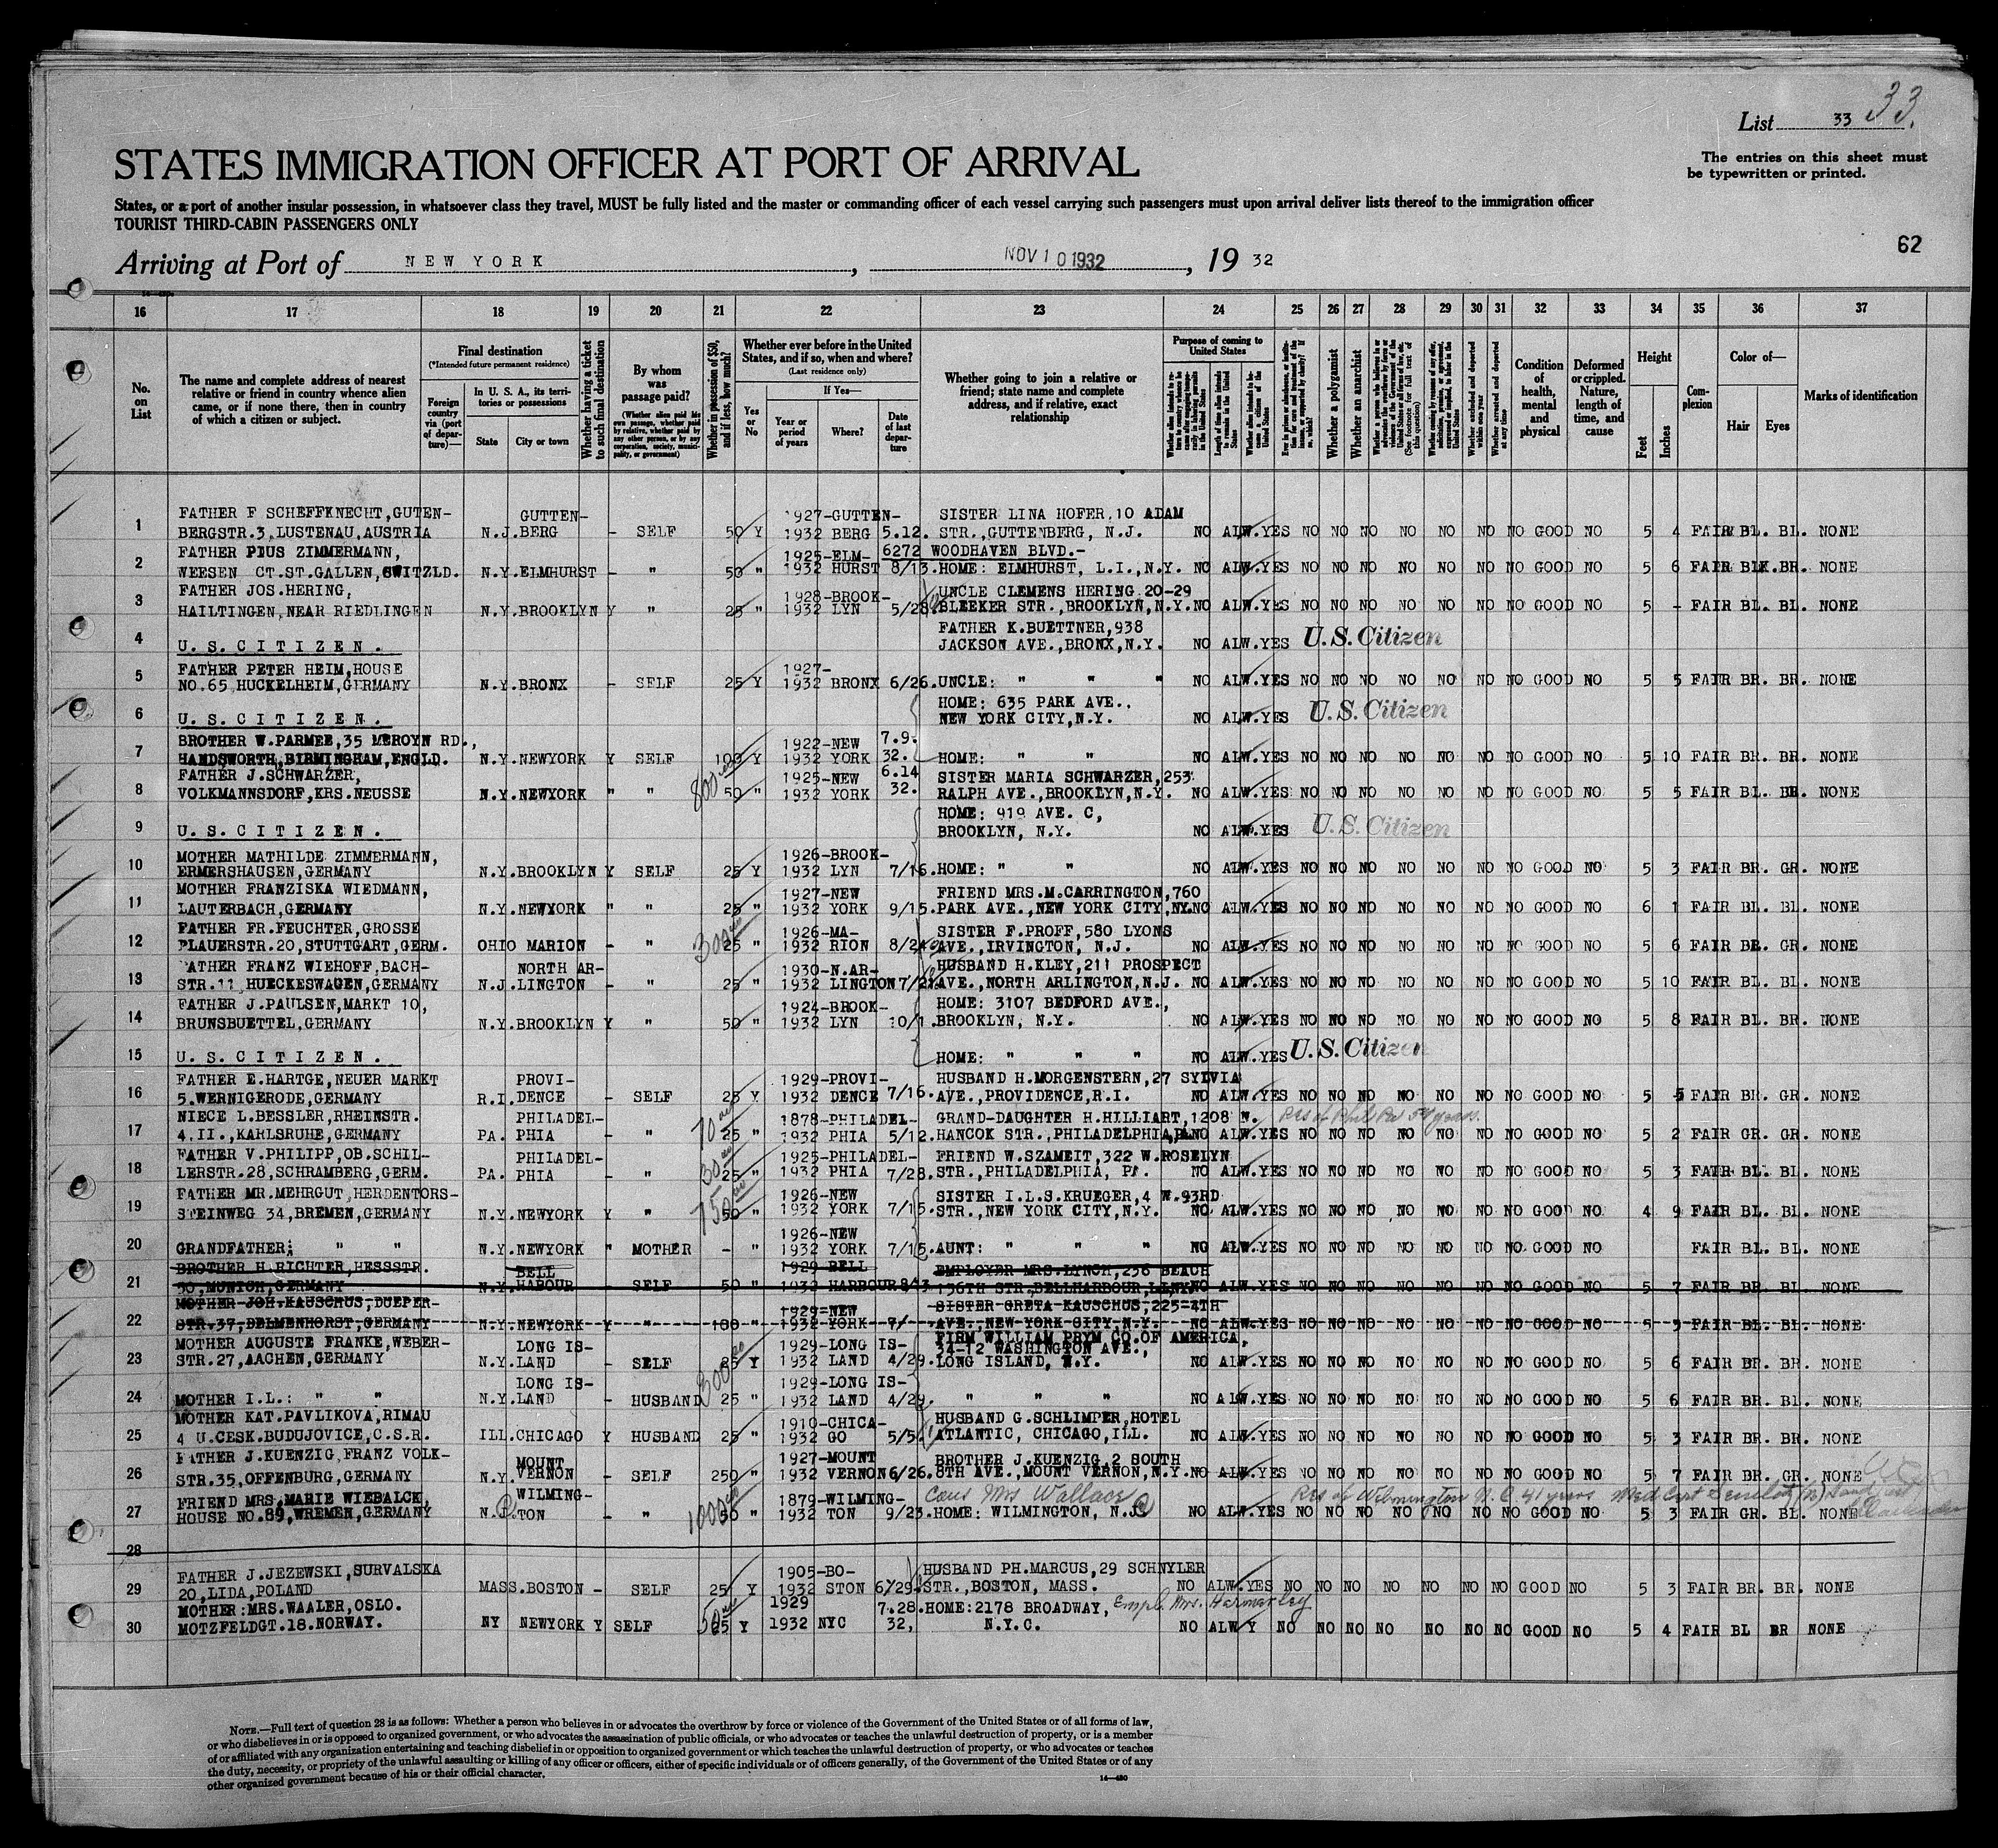 List 33 33.
STATES IMMIGRATION OFFICER AT PORT OF ARRIVAL
The entries on this sheet must
be typewritten or printed.
States, or a port of another insular possession, in whatsoever class they travel, MUST be fully listed and the master or commanding officer of each vessel carrying such passengers must upon arrival deliver lists thereof to the immigration officer
TOURIST THIRD-CABIN PASSENGERS ONLY
62
Arriving at Port of NEW YORK, NOV 10 1932, 19 32
16 17 18 19 20 21 22 23 24 25 26 27 28 29 30 31 32 33 34 35 36 37
No. on List
The name and complete address of nearest relative or friend in country whence alien came, or if none there, then in country of which a citizen or subject.
Final destination
(*Intended future permanent residence)
Foreign country via (port of departure)—
In U. S. A., its territories or possessions
State
City or town
Whether having a ticket to such final destination
By whom was passage paid?
(Whether alien paid his own passage, whether paid by relative, whether paid by any other person, or by any corporation, society, municipality, or government)
Whether in possession of $50, and if less, how much?
Whether ever before in the United States, and if so, when and where?
(Last residence only)
Yes or No
If Yes—
Year or period of years
Where?
Date of last departure
Whether going to join a relative or friend; state name and complete address, and if relative, exact relationship
Purpose of coming to United States
Length of time alien intends to remain in the United States
Whether alien intends to become a citizen of the United States
Whether a polygamist
Whether an anarchist
(See footnote for full text of this question)
Whether arrested and deported at any time
Condition of health, mental and physical
Deformed or crippled. Nature, length of time, and cause
Height
Feet
Inches
Complexion
Color of—
Hair
Eyes
Marks of identification
FATHER F SCHEFFKNECHT,GUTEN- GUTTEN- 1927-GUTTEN- SISTER LINA HOFER,10 ADAM
1 BERGSTR.3,LUSTENAU,AUSTRIA N.J. BERG - SELF 50 Y 1932 BERG 5.12. STR.,GUTTENBERG, N.J. NO ALW.YES NO NO NO NO NO NO NO GOOD NO 5 4 FAIR BL. BL. NONE
FATHER PIUS ZIMMERMANN, 1925-ELM- 6272 WOODHAVEN BLVD.-
2 WEESEN CT.ST.GALLEN,SWITZLD. N.Y. ELMHURST - " 50 " 1932 HURST 8/13. HOME: ELMHURST, L.I.,N.Y. NO ALW.YES NO NO NO NO NO NO NO GOOD NO 5 6 FAIR BLK.BR. NONE
FATHER JOS.HERING, 1928-BROOK- UNCLE CLEMENS HERING 20-29
3 HAILTINGEN,NEAR RIEDLINGEN N.Y. BROOKLYN Y " 25 " 1932 LYN 5/28. BLEEKER STR.,BROOKLYN,N.Y. NO ALW.YES NO NO NO NO NO NO NO GOOD NO 5 - FAIR BL. BL. NONE
FATHER K.BUETTNER,938
4 U.S.CITIZEN. JACKSON AVE.,BRONX,N.Y. NO ALW.YES U.S.Citizen
FATHER PETER HEIM,HOUSE 1927-
5 NO.65,HUCKELHEIM,GERMANY N.Y. BRONX - SELF 25 Y 1932 BRONX 6/26. UNCLE: " " " NO ALW.YES NO NO NO NO NO NO NO GOOD NO 5 5 FAIR BR. BR. NONE
HOME: 635 PARK AVE.,
6 U.S.CITIZEN. NEW YORK CITY,N.Y. NO ALW.YES U.S.Citizen
BROTHER W.PARMEE,35 MEROYN RD., 1922-NEW 7.9.
7 HANDSWORTH,BIRMINGHAM,ENGLD. N.Y. NEWYORK Y SELF 100 Y 1932 YORK 32. HOME: " " NO ALW.YES NO NO NO NO NO NO NO GOOD NO 5 10 FAIR BR. BR. NONE
FATHER J.SCHWARZER, 1925-NEW 6.14 SISTER MARIA SCHWARZER,253
8 VOLKMANNSDORF,KRS.NEUSSE N.Y. NEWYORK " " 800 50 " 1932 YORK 32. RALPH AVE.,BROOKLYN,N.Y. NO ALW.YES NO NO NO NO NO NO NO GOOD NO 5 5 FAIR BL. NONE
HOME: 919 AVE. C,
9 U.S.CITIZEN. BROOKLYN, N.Y. NO ALW.YES U.S.Citizen
MOTHER MATHILDE ZIMMERMANN, 1926-BROOK-
10 ERMERSHAUSEN,GERMANY N.Y. BROOKLYN Y SELF 25 Y 1932 LYN 7/16. HOME: " " NO ALW.YES NO NO NO NO NO NO NO GOOD NO 5 3 FAIR BR. GR. NONE
MOTHER FRANZISKA WIEDMANN, 1927-NEW FRIEND MRS.M.CARRINGTON,760
11 LAUTERBACH,GERMANY N.Y. NEWYORK " " 25 " 1932 YORK 9/15. PARK AVE.,NEW YORK CITY,NY. NO ALW.YES NO NO NO NO NO NO NO GOOD NO 6 1 FAIR BL. BL. NONE
FATHER FR.FEUCHTER,GROSSE 1926-MA- SISTER F.PROFF,580 LYONS
12 PLAUERSTR.20,STUTTGART,GERM. OHIO MARION - " 300 25 " 1932 RION 8/24 AVE.,IRVINGTON, N.J. NO ALW.YES NO NO NO NO NO NO NO GOOD NO 5 6 FAIR BR. GR. NONE
FATHER FRANZ WIEHOFF,BACH- NORTH AR- 1930-N.AR- HUSBAND H.KLEY,211 PROSPECT
13 STR.11 HUECKESWAGEN,GERMANY N.J. LINGTON - " 25 " 1932 LINGTON AVE.,NORTH ARLINGTON,N.J. NO ALW.YES NO NO NO NO NO NO NO GOOD NO 5 10 FAIR BL. BL. NONE
FATHER J.PAULSEN,MARKT 10, 1924-BROOK- HOME: 3107 BEDFORD AVE.,
14 BRUNSBUETTEL,GERMANY N.Y. BROOKLYN Y " 50 " 1932 LYN 10/1. BROOKLYN, N.Y. NO ALW.YES NO NO NO NO NO NO NO GOOD NO 5 8 FAIR BL. BR. NONE
15 U.S.CITIZEN. HOME: " " " NO ALW.YES U.S.Citizen
FATHER E.HARTGE,NEUER MARKT PROVI- 1929-PROVI- HUSBAND H.MORGENSTERN,27 SYLVIA
16 5.WERNIGERODE,GERMANY R.I. DENCE - SELF 25 Y 1932 DENCE 7/16. AVE.,PROVIDENCE,R.I. NO ALW.YES NO NO NO NO NO NO NO GOOD NO 5 5 FAIR BR. GR. NONE
NIECE L.BESSLER,RHEINSTR. PHILADEL- 1878-PHILADEL- GRAND-DAUGHTER H.HILLIART,1208 W. Res of Phil Pa 54 years.
17 4.II.,KARLSRUHE,GERMANY PA. PHIA - " 70 25 " 1932 PHIA 5/12. HANCOK STR.,PHILADELPHIA,PA. NO ALW.YES NO NO NO NO NO NO NO GOOD NO 5 2 FAIR GR. GR. NONE
FATHER V.PHILIPP,OB.SCHIL- PHILADEL- 1925-PHILADEL- FRIEND W.SZAMEIT,322 W.ROSELYN
18 LERSTR.28,SCHRAMBERG,GERM. PA. PHIA - " 30 25 " 1932 PHIA 7/28. STR.,PHILADELPHIA, PA. NO ALW.YES NO NO NO NO NO NO NO GOOD NO 5 3 FAIR BL. BL. NONE
FATHER MR.MEHRGUT,HERDENTORS- 1926-NEW SISTER I.L.S.KRUEGER,4 W.93RD
19 STEINWEG 34,BREMEN,GERMANY N.Y. NEWYORK Y " 750 50 " 1932 YORK 7/15. STR.,NEW YORK CITY,N.Y. NO ALW.YES NO NO NO NO NO NO NO GOOD NO 4 9 FAIR BL. BL. NONE
1926-NEW
20 GRANDFATHER: " " N.Y. NEWYORK " MOTHER - " 1932 YORK 7/15. AUNT: " " " NO ALW.YES NO NO NO NO NO NO NO GOOD NO FAIR BL. BL. NONE
BROTHER H.RICHTER,HESSSTR. BELL 1929 BELL EMPLOYER MRS.LYNCH,256 BEACH
21 50,MUNICH,GERMANY N.Y. HABOUR - SELF 50 " 1932 HARBOUR 136TH STR.,BELLHARBOUR, NO ALW.YES NO NO NO NO NO NO NO GOOD NO 5 7 FAIR BR. BL. NONE
MOTHER JOH.KAUSCHUS,DUEPER- 1929=NEW SISTER GRETA KAUSCHUS,225=4TH
22 STR.37,DELMENHORST,GERMANY N.Y. NEWYORK Y " 100 " 1932 YORK 7/ AVE.,NEW YORK CITY,N.Y. NO ALW.YES NO NO NO NO NO NO NO GOOD NO 5 3 FAIR BL. BL. NONE
MOTHER AUGUSTE FRANKE,WEBER- LONG IS- 1929-LONG IS- FIRM WILLIAM PRYM CO.OF AMERICA,
34-12 WASHINGTON AVE.,
23 STR.27,AACHEN,GERMANY N.Y. LAND - SELF 25 Y 1932 LAND 4/29. LONG ISLAND, N.Y. NO ALW.YES NO NO NO NO NO NO NO GOOD NO 5 6 FAIR BR. BR. NONE
LONG IS- 1929-LONG IS-
24 MOTHER I.L.: " " N.Y. LAND - HUSBAND 25 " 1932 LAND 4/29. " " " NO ALW.YES NO NO NO NO NO NO NO GOOD NO 5 6 FAIR BR. BL. NONE
MOTHER KAT.PAVLIKOVA,RIMAU 1910-CHICA- HUSBAND G.SCHLIMPER,HOTEL
25 4 U.CESK.BUDUJOVICE,C.S.R. ILL. CHICAGO Y HUSBAND 25 " 1932 GO 5/5. ATLANTIC, CHICAGO,ILL. NO ALW.YES NO NO NO NO NO NO NO GOOD NO 5 3 FAIR BR. BR. NONE
FATHER J.KUENZIG,FRANZ VOLK- MOUNT 1927-MOUNT BROTHER J.KUENZIG,2 SOUTH
26 STR.35,OFFENBURG,GERMANY N.Y. VERNON - SELF 250 " 1932 VERNON 6/26. 8TH AVE.,MOUNT VERNON,N.Y. NO ALW.YES NO NO NO NO NO NO NO GOOD NO 5 7 FAIR BR. GR. NONE
FRIEND MRS.MARIE WIEBALCK, WILMING- 1879-WILMING- Cous Mrs Wallace Res of Wilmington N.C. 41 years Med Cert Senility
27 HOUSE NO.89,WREMEN,GERMANY N.C. TON - " 1000 50 " 1932 TON 9/23. HOME: WILMINGTON, N.C. NO ALW.YES NO NO NO NO NO NO NO GOOD NO 5 3 FAIR GR. BL. NONE
28
FATHER J.JEZEWSKI,SURVALSKA 1905-BO- HUSBAND PH.MARCUS,29 SCHNYLER
29 20,LIDA,POLAND MASS. BOSTON - SELF 25 Y 1932 STON 6/29. STR.,BOSTON, MASS. NO ALW.YES NO NO NO NO NO NO NO GOOD NO 5 3 FAIR BR. BR. NONE
MOTHER:MRS.WAALER,OSLO. 1929 7.28. HOME:2178 BROADWAY, Empl. Mrs.
30 MOTZFELDGT.18.NORWAY. NY NEWYORK Y SELF 50 25 Y 1932 NYC 32, N.Y.C. NO ALW Y NO NO NO NO NO NO NO GOOD NO 5 4 FAIR BL BR NONE
NOTE.—Full text of question 28 is as follows: Whether a person who believes in or advocates the overthrow by force or violence of the Government of the United States or of all forms of law,
or who disbelieves in or is opposed to organized government, or who advocates the assassination of public officials, or who advocates or teaches the unlawful destruction of property, or is a member
of or affiliated with any organization entertaining and teaching disbelief in or opposition to organized government or which teaches the unlawful destruction of property, or who advocates or teaches
the duty, necessity, or propriety of the unlawful assaulting or killing of any officer or officers, either of specific individuals or of officers generally, of the Government of the United States or of any
other organized government because of his or their official character.
14—480